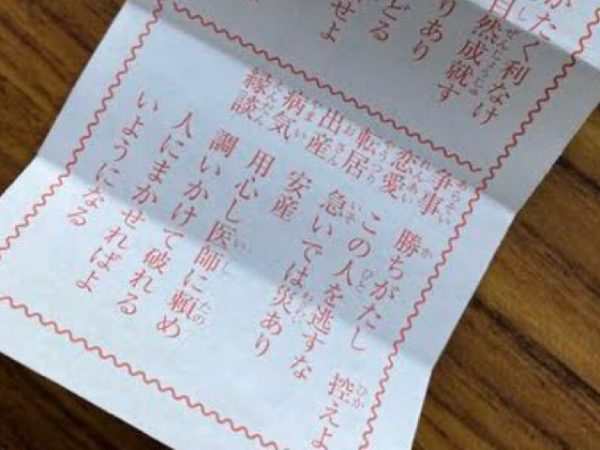 がたく利なけ
自然成就す
りあり
どる
せよ
争事 勝ちがたし 控えよ
恋愛 この人を逃すな
転居 急いでは災あり
出産 安産
病気 用心し医師に頼め
縁談 調いかけて破れる
人にまかせればよ
いようになる